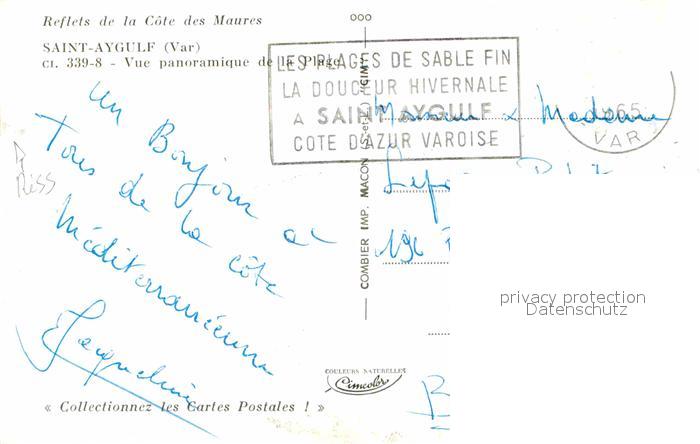 Reflets de la Côte des Maures
SAINT-AYGULF (Var)
Cl. 339-8 - Vue panoramique de la Plage
LES PLAGES DE SABLE FIN
LA DOUCEUR HIVERNALE
A SAINT-AYGULF
COTE D'AZUR VAROISE
1965
VAR
un Bonjour à
Tous de la côte
Méditerranéenne
Jacqueline
Riss
« Collectionnez les Cartes Postales ! »
COMBIER IMP. MACON (S.-et-L.) "CIM"
COULEURS NATURELLES
Cimcolor
Monsieur & Madame
196
privacy protection
Datenschutz